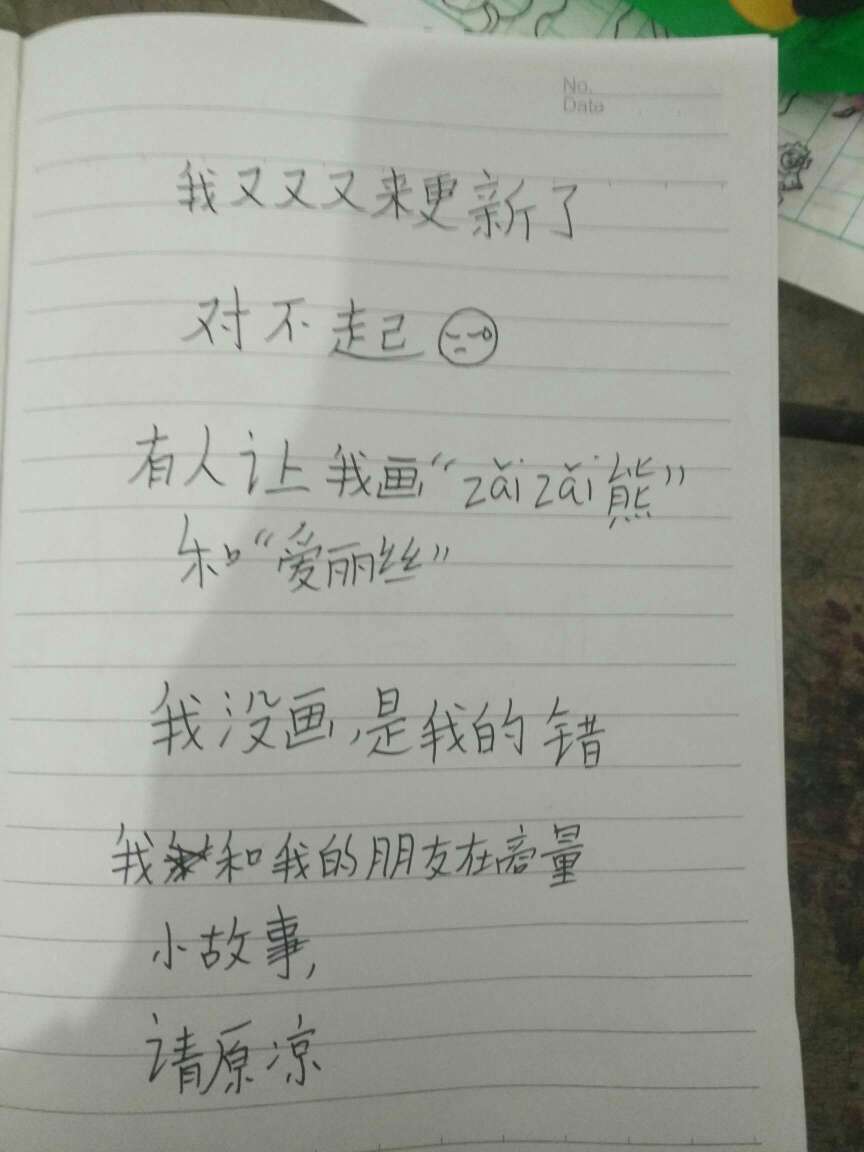 No.
Date
我又又又来更新了
对不起
有人让我画“zǎizǎi熊”
和“爱丽丝”
我没画,是我的错
我和我的朋友在商量
小故事,
请原凉